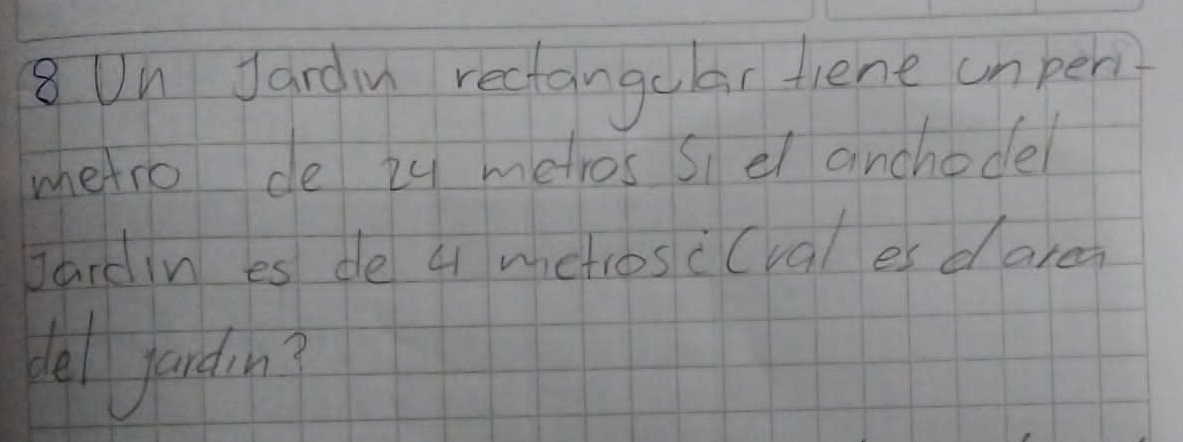 8 Un Jardin rectangular tiene un peri-
metro de 24 metros Si el ancho del
Jardin es de 4 metros ¿Cual es el area
del jardin?